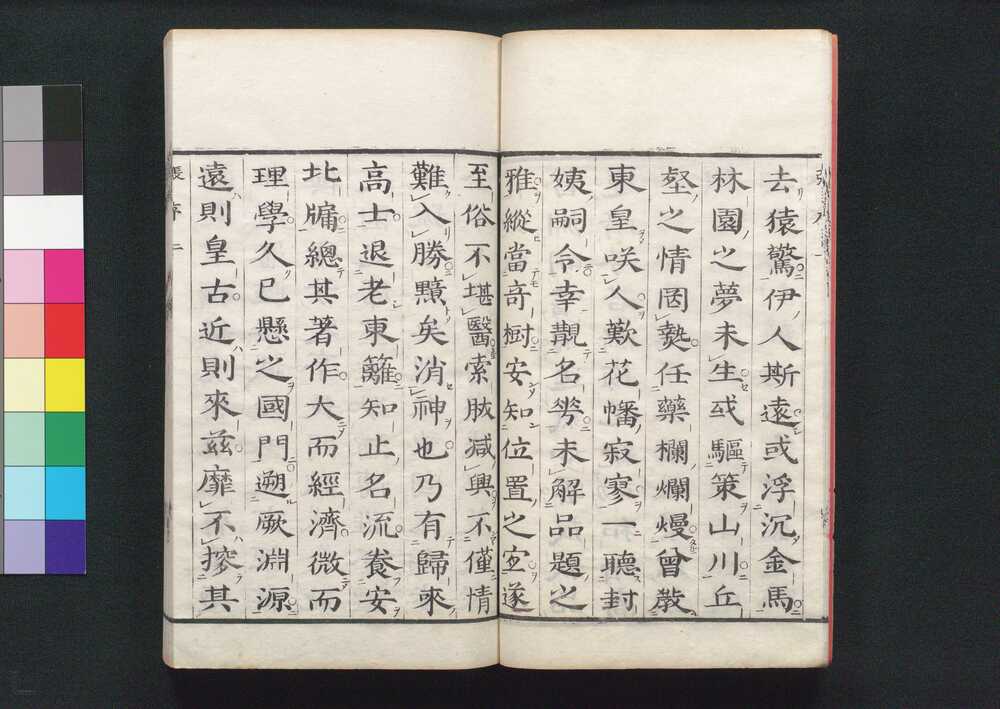 去猿驚伊人斯遠或浮沉金馬
林園之夢未生或驅策山川丘
壑之情罔摯任藥欄爛熳曾散
東皇咲人歎花幡寂寥一聽封
姨嗣令幸覯名未解品題之
雅縱當奇樹安知位置之宜遂
至俗不堪醫索肢减興不僅情
難入勝黯矣消神也乃有歸來
高士退老東籬知止名流養安
北牖總其著作大而經濟微而
理學久已懸之國門遡厥淵源
遠則皇古近則來茲靡不搾其
張序 二